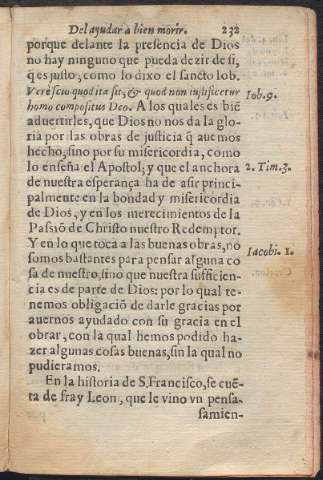 Del ayudar a bien morir. 232
porque delante la presencia de Dios
no hay ninguno que pueda dezir de si,
q̃ es justo; como lo dixo el sancto Iob.
Vere scio quod ita sit, & quod non iustificetur
Iob. 9.
homo compositus Deo. A los quales es biẽ
aduertirles, que Dios no nos da la glo-
ria por las obras de justicia q̃ auemos
hecho, sino por su misericordia, como
lo enseña el Apostol; y que el anchora
2. Tim. 3.
de nuestra esperança ha de asir princi-
palmente en la bondad y misericordia
de Dios, y en los merecimientos de la
Passiõ de Christo nuestro Redemptor.
Y en lo que toca a las buenas obras, no
Iacobi. 1.
somos bastantes para pensar alguna co
sa de nuestro, sino que nuestra sufficien-
cia es de parte de Dios: por lo qual te-
nemos obligaciõ de darle gracias por
auernos ayudado con su gracia en el
obrar, con la qual hemos podido ha-
zer algunas cosas buenas, sin la qual no
pudieramos.
En la historia de S. Francisco, se cuẽ-
ta de fray Leon, que le vino vn pensa-
samien-